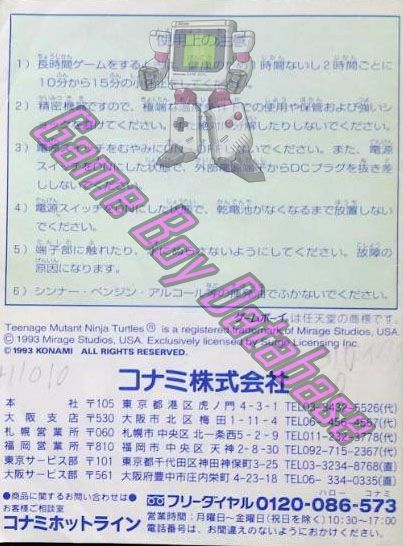 使用上の注意
1）長時間ゲームをする 時間ないし2時間ごとに
10分から15分の小
2）精密機器ですので、極端な での使用や保管および強いシ
けてください。 解したりしないでください。
3）電源スイッチをむやみに しないでください。また、電源
スイッチをONにした状態で、外部 端子からDCプラグを抜き差
ししない
4）電源スイッチをONにした状態で、乾電池がなくなるまで放置しない
でください。
5）端子部に触れたり、 らさないようにしてください。故障の
原因になります。
6）シンナー・ベンジン・アルコール等の揮発油でふかないでください。
ゲームボーイは任天堂の商標です。
Teenage Mutant Ninja Turtles® is a registered trademark of Mirage Studios, USA.
© 1993 Mirage Studios, USA. Exclusively licensed by Surge Licensing Inc.
© 1993 KONAMI ALL RIGHTS RESERVED.
コナミ株式会社
本 社 〒105 東京都港区虎ノ門4-3-1 TEL03-3432-5526(代)
大阪支店 〒530 大阪市北区梅田1-11-4 TEL06-456-4567(代)
札幌営業所 〒060 札幌市中央区北一条西5-2-9 TEL011-232-3778(代)
福岡営業所 〒810 福岡市中央区天神2-8-30 TEL092-715-2367(代)
東京サービス部 〒101 東京都千代田区神田神保町3-25 TEL03-3234-8768(直)
大阪サービス部 〒561 大阪府豊中市庄内栄町4-23-18 TEL06-334-0335(直)
●商品に関するお問い合わせは●
お客様ご相談室
コナミホットライン
フリーダイヤル 0120-086-573
ハロー コナミ
営業時間：月曜日～金曜日(祝日を除く)10:30～17:00
電話番号は、お間違えのないようにおかけください。
Game Boy Database